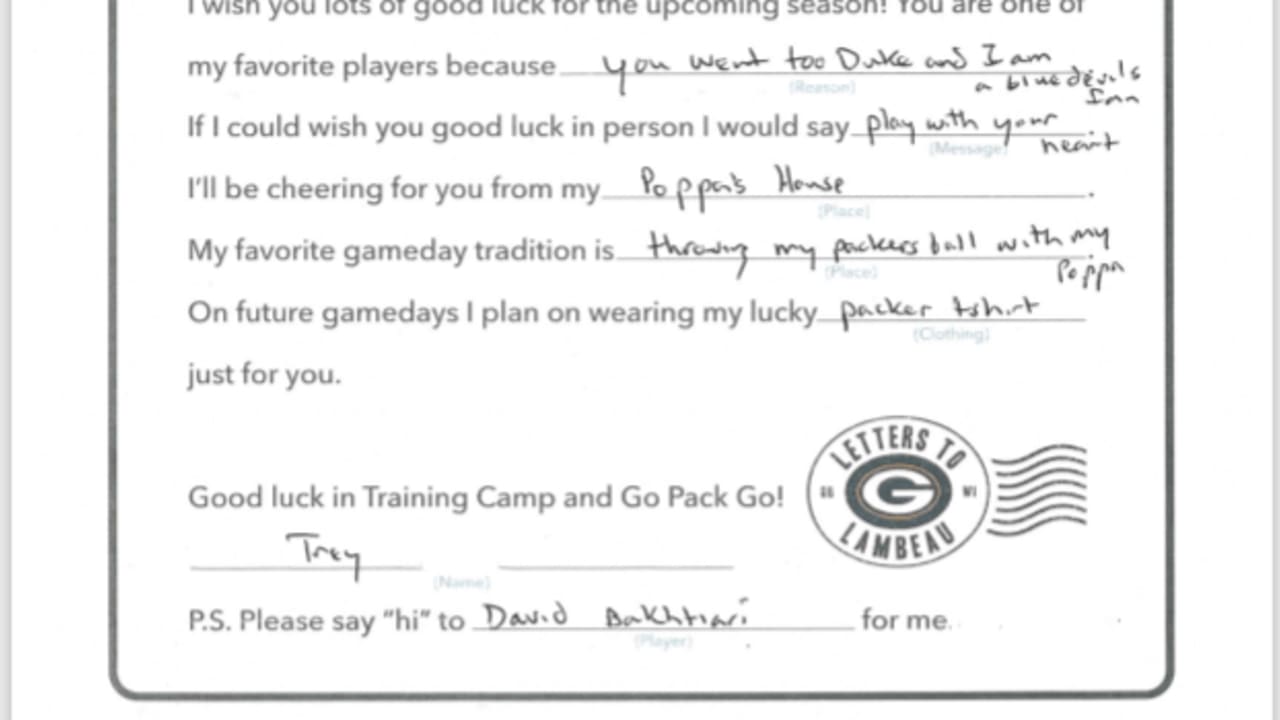 I wish you lots of good luck for the upcoming season! You are one of
my favorite players because you went too Duke and I am
(Reason) a blue devils
fan
If I could wish you good luck in person I would say play with your
(Message) heart
I'll be cheering for you from my Poppa's House.
(Place)
My favorite gameday tradition is throwing my packers ball with my.
(Place) Poppa
On future gamedays I plan on wearing my lucky packer tshirt
(Clothing)
just for you.
LETTERS TO
Good luck in Training Camp and Go Pack Go! GB G WI
LAMBEAU
Trey
(Name)
P.S. Please say "hi" to David Bakhtiari for me.
(Player)